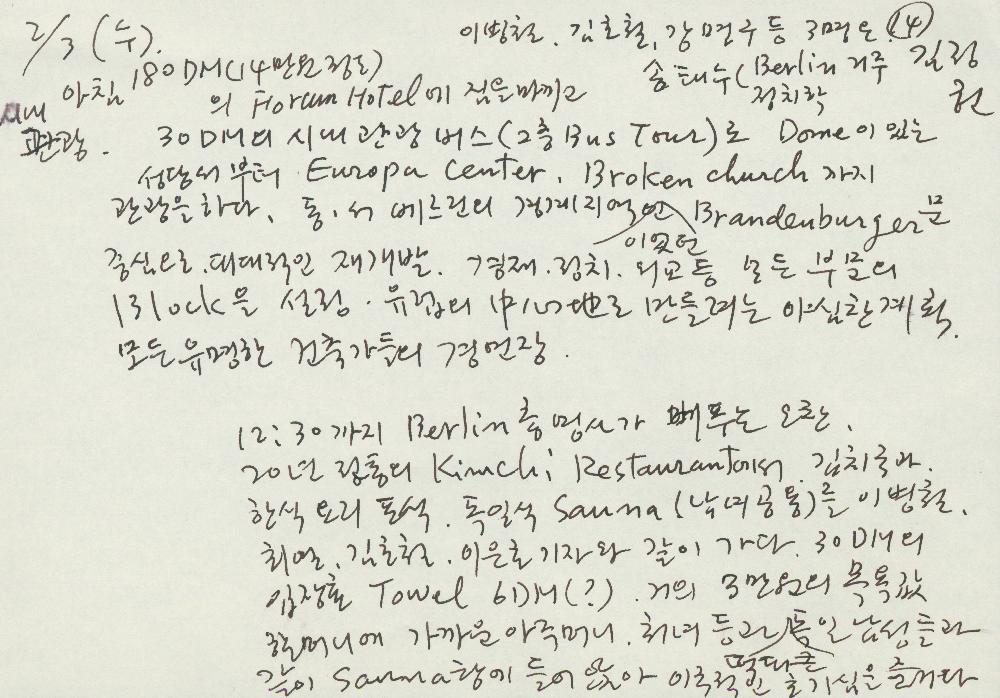 2/3 (수). 이병철. 김호철, 강면구 등 3명은 (14)
아침 180DM(14만원정도) 송태수(Berlin 거주 김정
의 Forum Hotel에 짐을 맡기고 정치학 원
시내 30DM의 시내관광버스(2층 Bus Tour)로 Dome이 있는
관광. 성당서부터 Europa Center, Broken church까지
관광을 하다. 동·서 베르린의 경계지역이었던 Brandenburger문
중심으로. 대대적인 재개발. 경제·정치·외교 등 모든 부문의
Block을 설정. 유럽의 中心地로 만들려는 야심찬 계획.
모든 유명한 건축가들의 경연장.
12:30까지 Berlin 총영사가 베푸는 오찬.
20년 전통의 Kimchi Restaurant에서 김치국과.
한식요리 포식. 독일식 Sauna(남녀공통)를 이병철,
최열, 김호철, 이은호 기자와 같이 가다. 30DM의
입장료 Towel 6DM(?). 거의 3만원의 목욕값
할머니에 가까운 아주머니. 처녀 등과 독일 남성들과
같이 Sauna탕에 들어앉아 이국적인 호기심을 즐기다